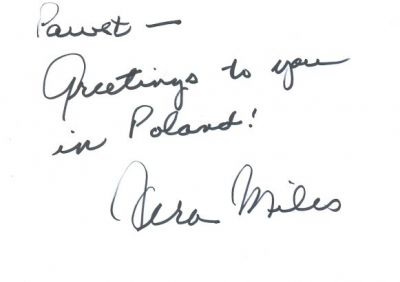 Paweł —
Greetings to you
in Poland!
Vera Miles